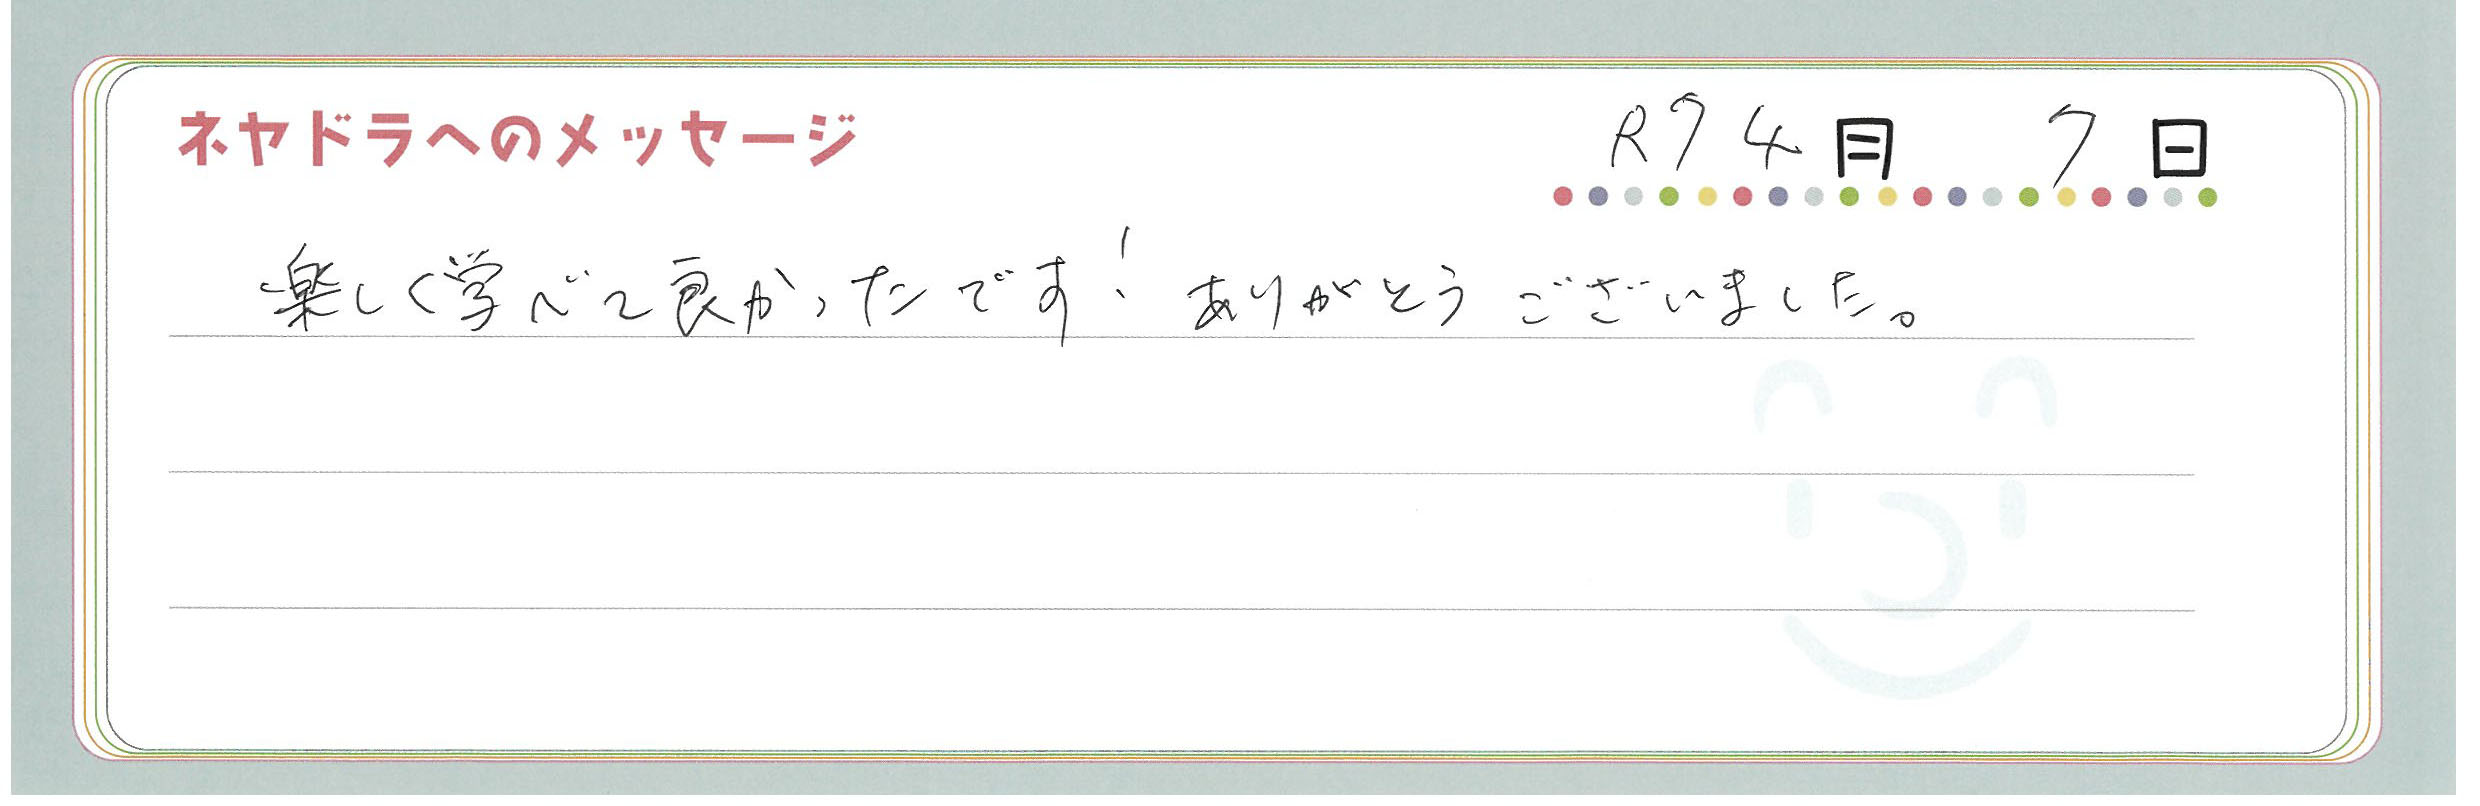 ネヤドラへのメッセージ
R7 4月 7日
楽しく学べて良かったです！ありがとうございました。